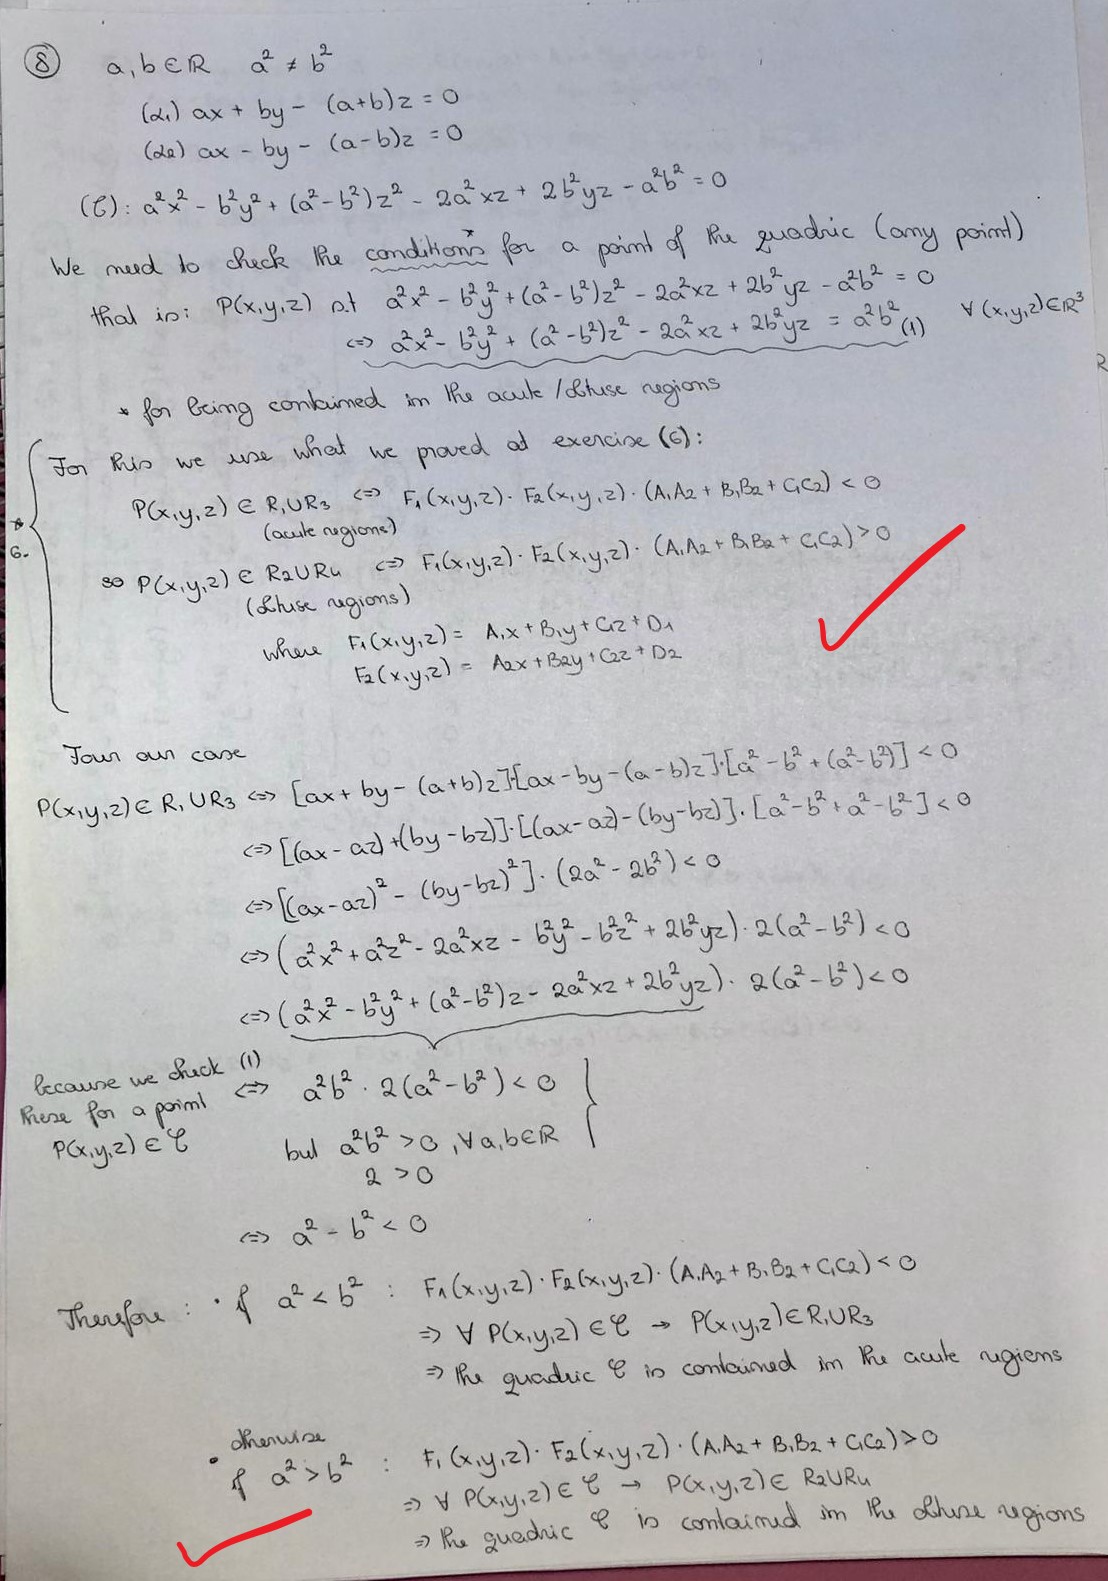 ⑧ a, b ∈ ℝ a² ≠ b²
(α₁) ax + by - (a+b)z = 0
(α₂) ax - by - (a-b)z = 0
(𝒞): a²x² - b²y² + (a²-b²)z² - 2a²xz + 2b²yz - a²b² = 0
We need to check the conditions* for a point of the quadric (any point)
that is: P(x,y,z) s.t a²x² - b²y² + (a²-b²)z² - 2a²xz + 2b²yz - a²b² = 0
⇔ a²x² - b²y² + (a²-b²)z² - 2a²xz + 2b²yz = a²b² (1) ∀ (x,y,z) ∈ ℝ³
* for being contained in the acute / obtuse regions
For this we use what we proved at exercise (6):
P(x,y,z) ∈ R₁UR₃ ⇔ F₁(x,y,z) · F₂(x,y,z) · (A₁A₂ + B₁B₂ + C₁C₂) < 0
(acute regions)
* 6.
so P(x,y,z) ∈ R₂UR₄ ⇔ F₁(x,y,z) · F₂(x,y,z) · (A₁A₂ + B₁B₂ + C₁C₂) > 0
(obtuse regions)
where F₁(x,y,z) = A₁x + B₁y + C₁z + D₁
F₂(x,y,z) = A₂x + B₂y + C₂z + D₂
our case
P(x,y,z) ∈ R₁UR₃ ⇔ [ax + by - (a+b)z]·[ax - by - (a-b)z]·[a² - b² + (a²-b²)] < 0
⇔ [(ax - az) + (by - bz)]·[(ax - az) - (by - bz)]·[a² - b² + a² - b²] < 0
⇔ [(ax-az)² - (by-bz)²]·(2a² - 2b²) < 0
⇔ (a²x² + a²z² - 2a²xz - b²y² - b²z² + 2b²yz)·2(a² - b²) < 0
⇔ (a²x² - b²y² + (a²-b²)z - 2a²xz + 2b²yz)·2(a² - b²) < 0
because we check these for a point P(x,y,z) ∈ 𝒞 (1) ⇔ a²b² · 2(a² - b²) < 0
but a²b² > 0, ∀ a, b ∈ ℝ
2 > 0
⇔ a² - b² < 0
Therefore: • if a² < b² : F₁(x,y,z) · F₂(x,y,z) · (A₁A₂ + B₁B₂ + C₁C₂) < 0
⇒ ∀ P(x,y,z) ∈ 𝒞 → P(x,y,z) ∈ R₁UR₃
⇒ the quadric 𝒞 is contained in the acute regions
otherwise
• if a² > b² : F₁(x,y,z) · F₂(x,y,z) · (A₁A₂ + B₁B₂ + C₁C₂) > 0
⇒ ∀ P(x,y,z) ∈ 𝒞 → P(x,y,z) ∈ R₂UR₄
⇒ the quadric 𝒞 is contained in the obtuse regions